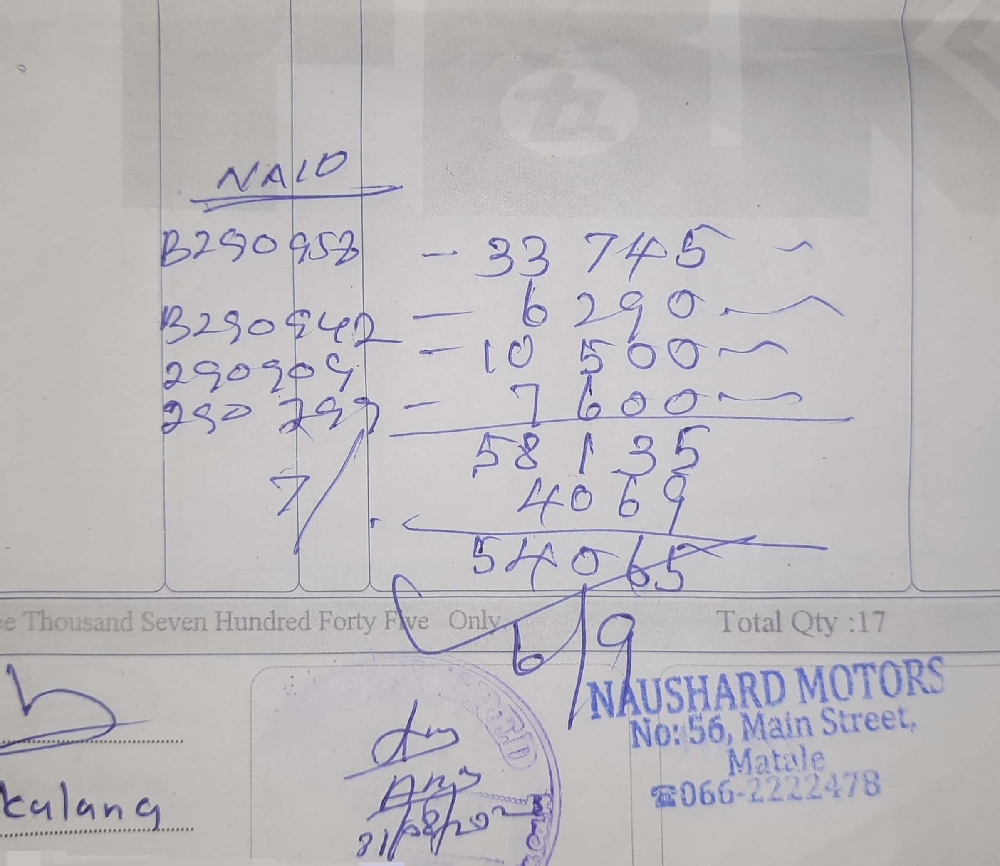 NAID
B290953 - 33 745
B290942 - 6 290
290909 - 10 500
290799 - 7 600
58 135
7/. 4069
54065
Thousand Seven Hundred Forty Five Only
Total Qty :17
6/9
NAUSHARD MOTORS
No: 56, Main Street,
Matale
☎066-2222478
kalana
31/08/202